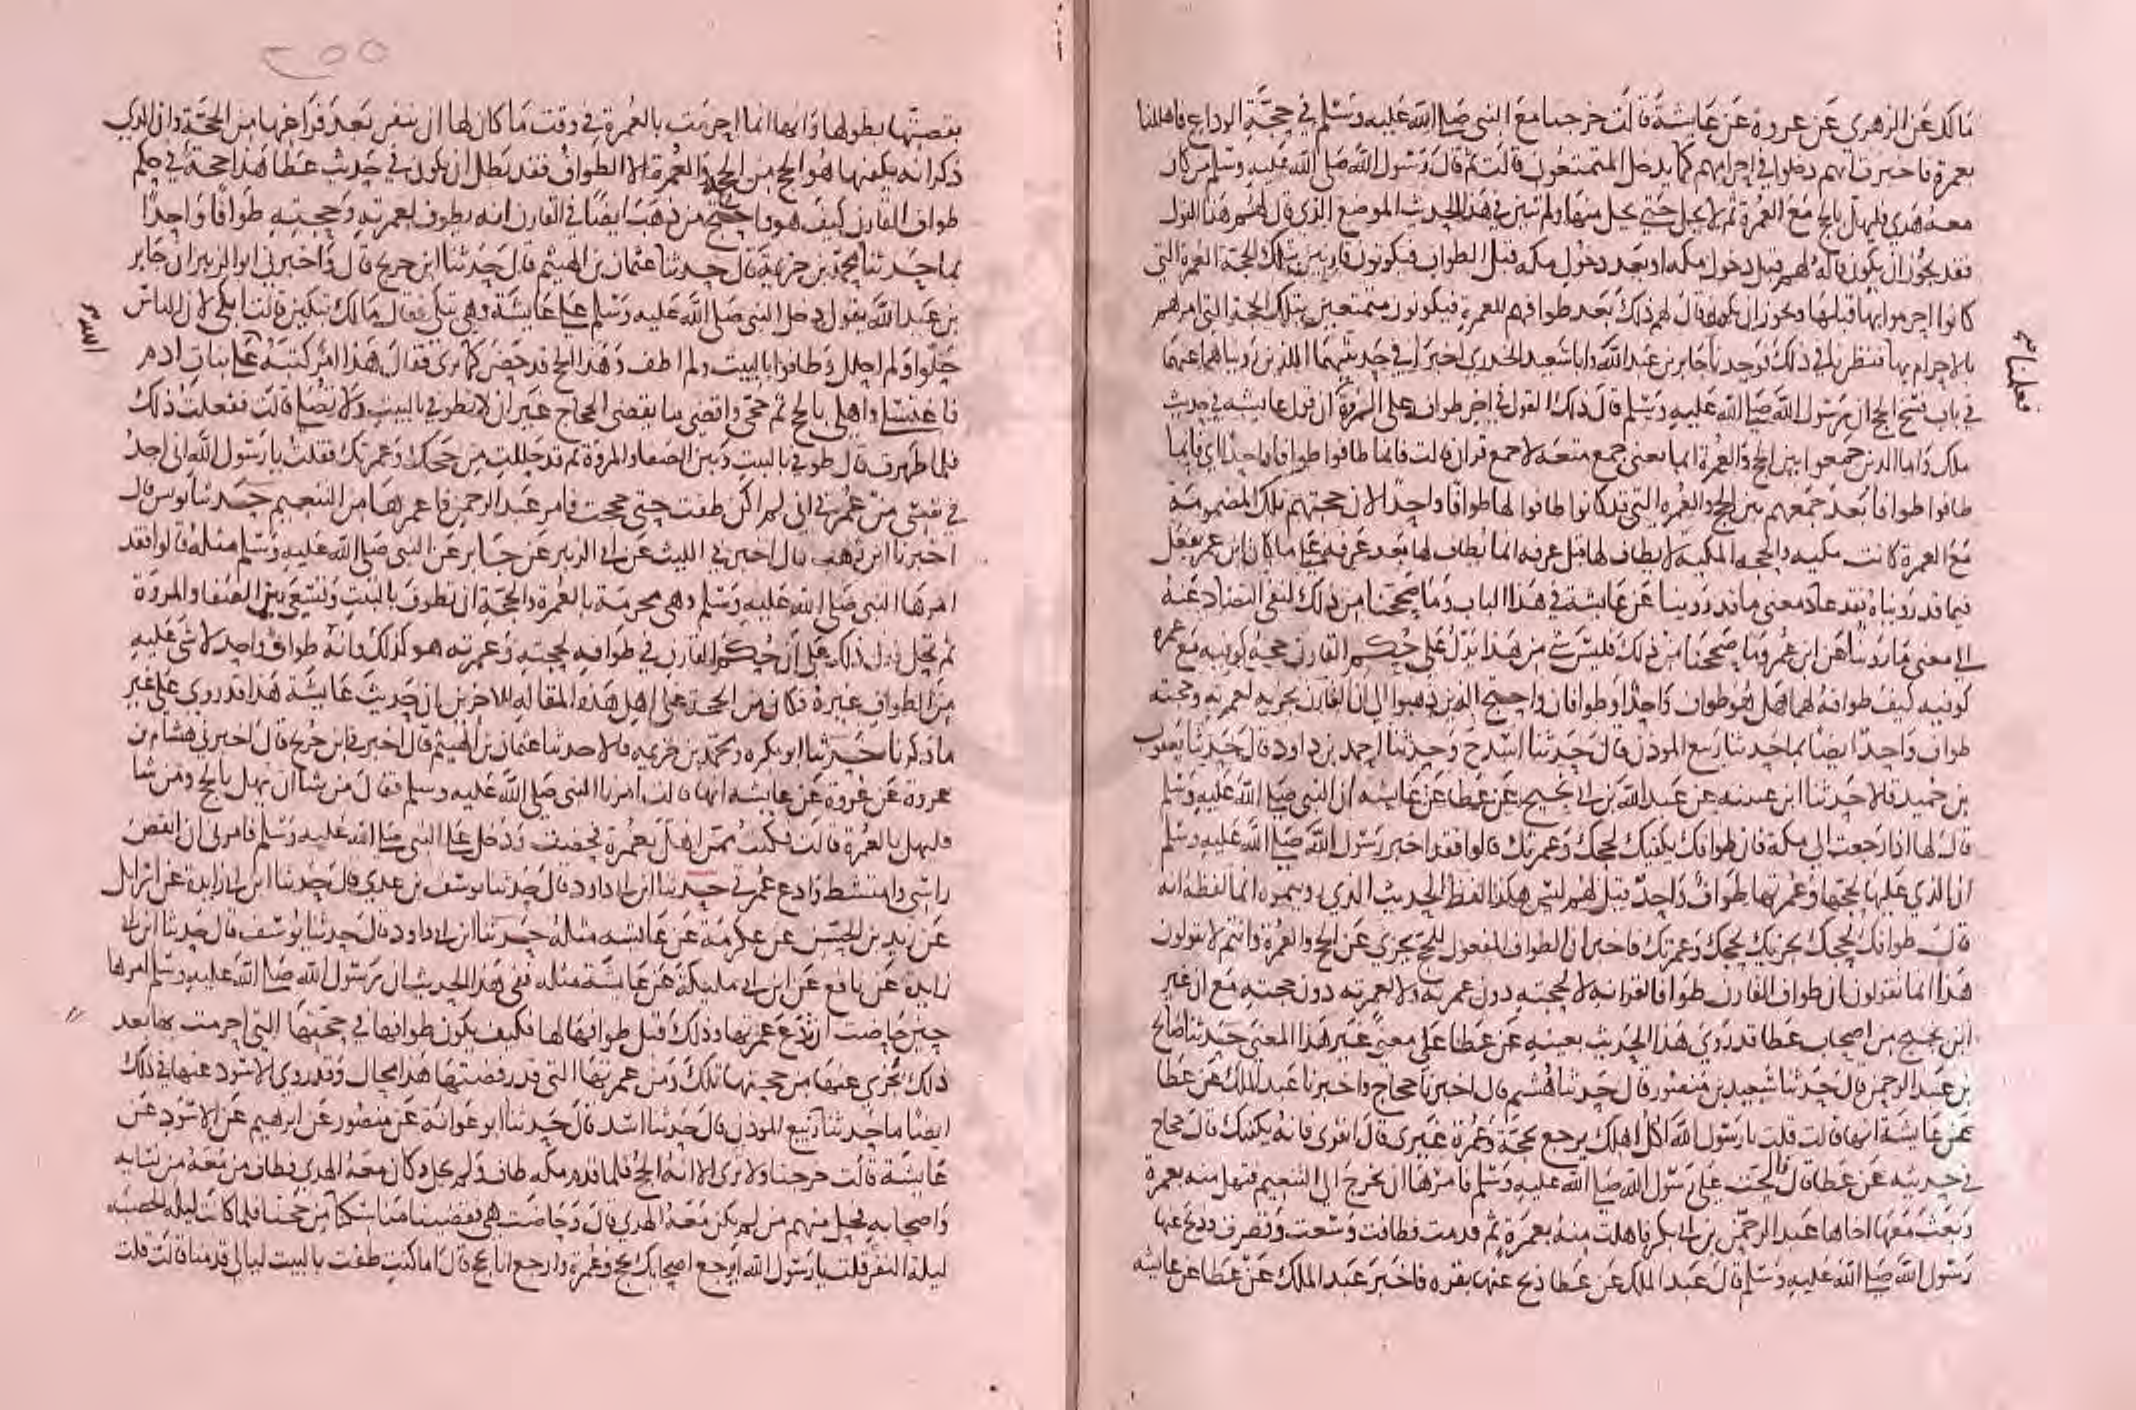 مالك عن الزهري عن عروة عن عايشة قالت خرجنا مع النبي صلى الله عليه وسلم في حجة الوداع فاهللنا
بعمرة فاخبرت انهم دخلوا في احرامهم كما يدخل المتمتعون قالت ثم قال رسول الله صلى الله عليه وسلم من كان
معه هدي فليهل بالحج مع العمرة ثم لا يحل حتى يحل منهما ولم تبين في هذا الحديث الموضع الذي قال لهم هذا القول
فقد يجوز ان يكون قاله لهم قبل دخول مكه او بعد دخول مكه قبل الطواف فيكونون قارنين بتلك الحجة العمرة التي
كانوا احرموا بها قبلها ويجوز ان يكون قال لهم ذلك بعد طوافهم للعمرة فيكونون متمتعين بتلك الحجة التي امرهم
بالاحرام بها فنظرنا في ذلك فوجدنا جابر بن عبد الله وابا سعيد الخدري اخبرا في حديثهما اللذين رويناهما عنهما
في باب فسخ الحج ان رسول الله صلى الله عليه وسلم قال ذلك القول في اخر طواف على المروة ان قول عايشه في حديث
ملك واما الذين جمعوا بين الحج والعمرة انما يعني جمع متعه لا جمع قران قالت فانما طافوا طوافا واحدا اي فانما
طافوا طوافا بعد جمعهم بين الحج والعمره التي قد كانوا طافوا لها طوافا واحدا لان حجتهم تلك المضمومة
مع العمرة كانت مكيه والحجه المكيه لا يطاف لها قبل عرفه انما يطاف لها بعد عرفه على ما كان ابن عمر يفعل
فيما قد رويناه فقد عاد معنى ما قد روينا عن عايشة في هذا الباب وما صححنا من ذلك لنفي التضاد عنه
الى معنى ما روينا عن ابن عمر وما صححنا من ذلك فليس شي من هذا يدل على حكم القارن حجه كوفيه مع عمرة
كوفيه كيف طوافه لهما هل هو طواف واحد او طوافان واحتج الذين ذهبوا الى ان القارن يجزيه لعمرته وحجته
طواف واحد ايضا بما حدثنا ربيع الموذن قال حدثنا اسد ح وحدثنا احمد بن داود قال حدثنا يعقوب
بن حميد قالا حدثنا ابن عيينه عن عبد الله بن ابي نجيح عن عطا عن عايشه ان النبي صلى الله عليه وسلم
قال لها اذا رجعت الى مكة فان طوافك يكفيك لحجك وعمرتك قالوا فقد اخبر رسول الله صلى الله عليه وسلم
ان الذي عليها لحجتها وعمرتها طواف واحد قيل لهم ليس هكذا لفظ الحديث الذي رويتموه انما لفظه انه
قال طوافك لحجك يجزيك لحجك وعمرتك فاخبر ان الطواف المفعول للحج يجزي عن الحج والعمرة وانتم لا تقولون
هذا انما تقولون ان طواف القارن طواف لقرانه لا لحجته دون عمرته ولا لعمرته دون حجته مع ان غير
ابن نجيح من اصحاب عطا قد روى هذا الحديث بعينه عن عطا على معنى غير هذا المعنى حدثنا صالح
بن عبد الرحمن قال حدثنا سعيد بن منصور قال حدثنا هشيم قال اخبرنا حجاج واخبرنا عبد الملك عن عطا
عن عايشة انها قالت قلت يا رسول الله اكل اهلك يرجع بحجة وعمرة غيري قال انفري فانه يكفيك قال حجاج
في حديثه عن عطا قال على رسول الله صلى الله عليه وسلم فامرها ان تخرج الى التنعيم فتهل منه بعمرة
وبعث معها اخاها عبد الرحمن بن ابي بكر فاهلت منه بعمرة ثم قدمت فطافت وسعت وقصرت وذبح عنها
رسول الله صلى الله عليه وسلم قال عبد الملك عن عطا ذبح عنها بقره فاخبر عبد الملك عن عطا عن عايشه
٢٥٥
بقصتها بطولها وانها انما احرمت بالعمرة في وقت ما كان لها ان تنفر بعد فراغها من الحجة وان الذي
ذكر انه يكفيها هو الحج من الحجة والعمرة لا الطواف فقد بطل ان يكون في حديث عطا هذا حجة في حكم
طواف القارن كيف هو واحتج من ذهب ايضا في القارن انه يطوف لعمرته وحجته طوافا واحدا
بما حدثنا محمد بن خزيمة قال حدثنا عثمان بن الهيثم قال حدثنا ابن جريج قال واخبرني ابو الزبير ان جابر
بن عبد الله يقول دخل النبي صلى الله عليه وسلم على عايشة وهي تبكي فقال مالك تبكين قالت ابكي لان الناس
حلوا ولم احلل وطافوا بالبيت ولم اطف وهذا الحج قد حضر كما ترى فقال هذا امر كتبه على بنات ادم
فاغتسلي واهلي بالحج ثم حجي واقضي ما يقضي الحاج غير ان لا تطوفي بالبيت ولا تصلي قالت ففعلت ذلك
فلما طهرت قال طوفي بالبيت وبين الصفا والمروة ثم قد حللت من حجك وعمرتك فقلت يا رسول الله اني اجد
في نفسي من عمرتي اني لم اكن طفت حتى حججت فامر عبد الرحمن فاعمرها من التنعيم حدثنا يونس قال
اخبرنا ابن وهب قال اخبرني الليث عن ابي الزبير عن جابر عن النبي صلى الله عليه وسلم مثله قالوا فقد
امرها النبي صلى الله عليه وسلم وهي محرمة بالعمرة والحجة ان تطوف بالبيت وتسعى بين الصفا والمروة
ثم تحل فدل ذلك على ان حكم القارن في طوافه لحجته وعمرته هو كذلك وانه طواف واحد لا شي عليه
من الطواف غيره فكان من الحجة على اهل هذه المقاله للاخرين ان حديث عايشة هذا قد روي على غير
ما ذكرنا حدثنا ابو بكره ومحمد بن خزيمه قالا حدثنا عثمان بن الهيثم قال اخبرني ابن جريج قال اخبرني هشام بن
عروة عن عروة عن عايشه انها قالت امرنا النبي صلى الله عليه وسلم فقال من شا ان يهل بالحج ومن شا
فليهل بالعمرة قالت فكنت ممن اهل بعمرة فحضت ودخل علي النبي صلى الله عليه وسلم فامرني ان انقض
راسي وامتشط وادع عمرتي حدثنا ابن ابي داود قال حدثنا يوسف بن عدي قال حدثنا ابن ابي زايدة عن اسرايل
عن زيد بن الحسن عن عكرمة عن عايشه مثله حدثنا ابن ابي داود قال حدثنا يوسف قال حدثنا ابن ابي
زايده عن نافع عن ابن ابي مليكة عن عايشة مثله ففي هذا الحديث ان رسول الله صلى الله عليه وسلم امرها
حين حاضت ان تدع عمرتها وذلك قبل طوافها لها فكيف يكون طوافها في حجتها التي احرمت بها بعد
ذلك يجزي عنها من حجتها تلك ومن عمرتها التي قد رفضتها هذا محال وقد روى الاسود عنها في ذلك
ايضا ما حدثنا ربيع الموذن قال حدثنا اسد قال حدثنا ابو عوانة عن منصور عن ابرهيم عن الاسود عن
عايشة قالت خرجنا ولا نرى الا انه الحج فلما قدم مكه طاف ولم يحل وكان معه الهدي فطاف من معه من نسايه
واصحابه فحل منهم من لم يكن معه الهدي قال وحاضت هي فقضينا مناسكنا من حجنا فلما كانت ليله الحصبه
ليلة النفر قلت يا رسول الله ايرجع اصحابك بحج وعمرة وارجع انا بحج قال اما كنت طفت بالبيت ليالي قدمنا قالت قلت